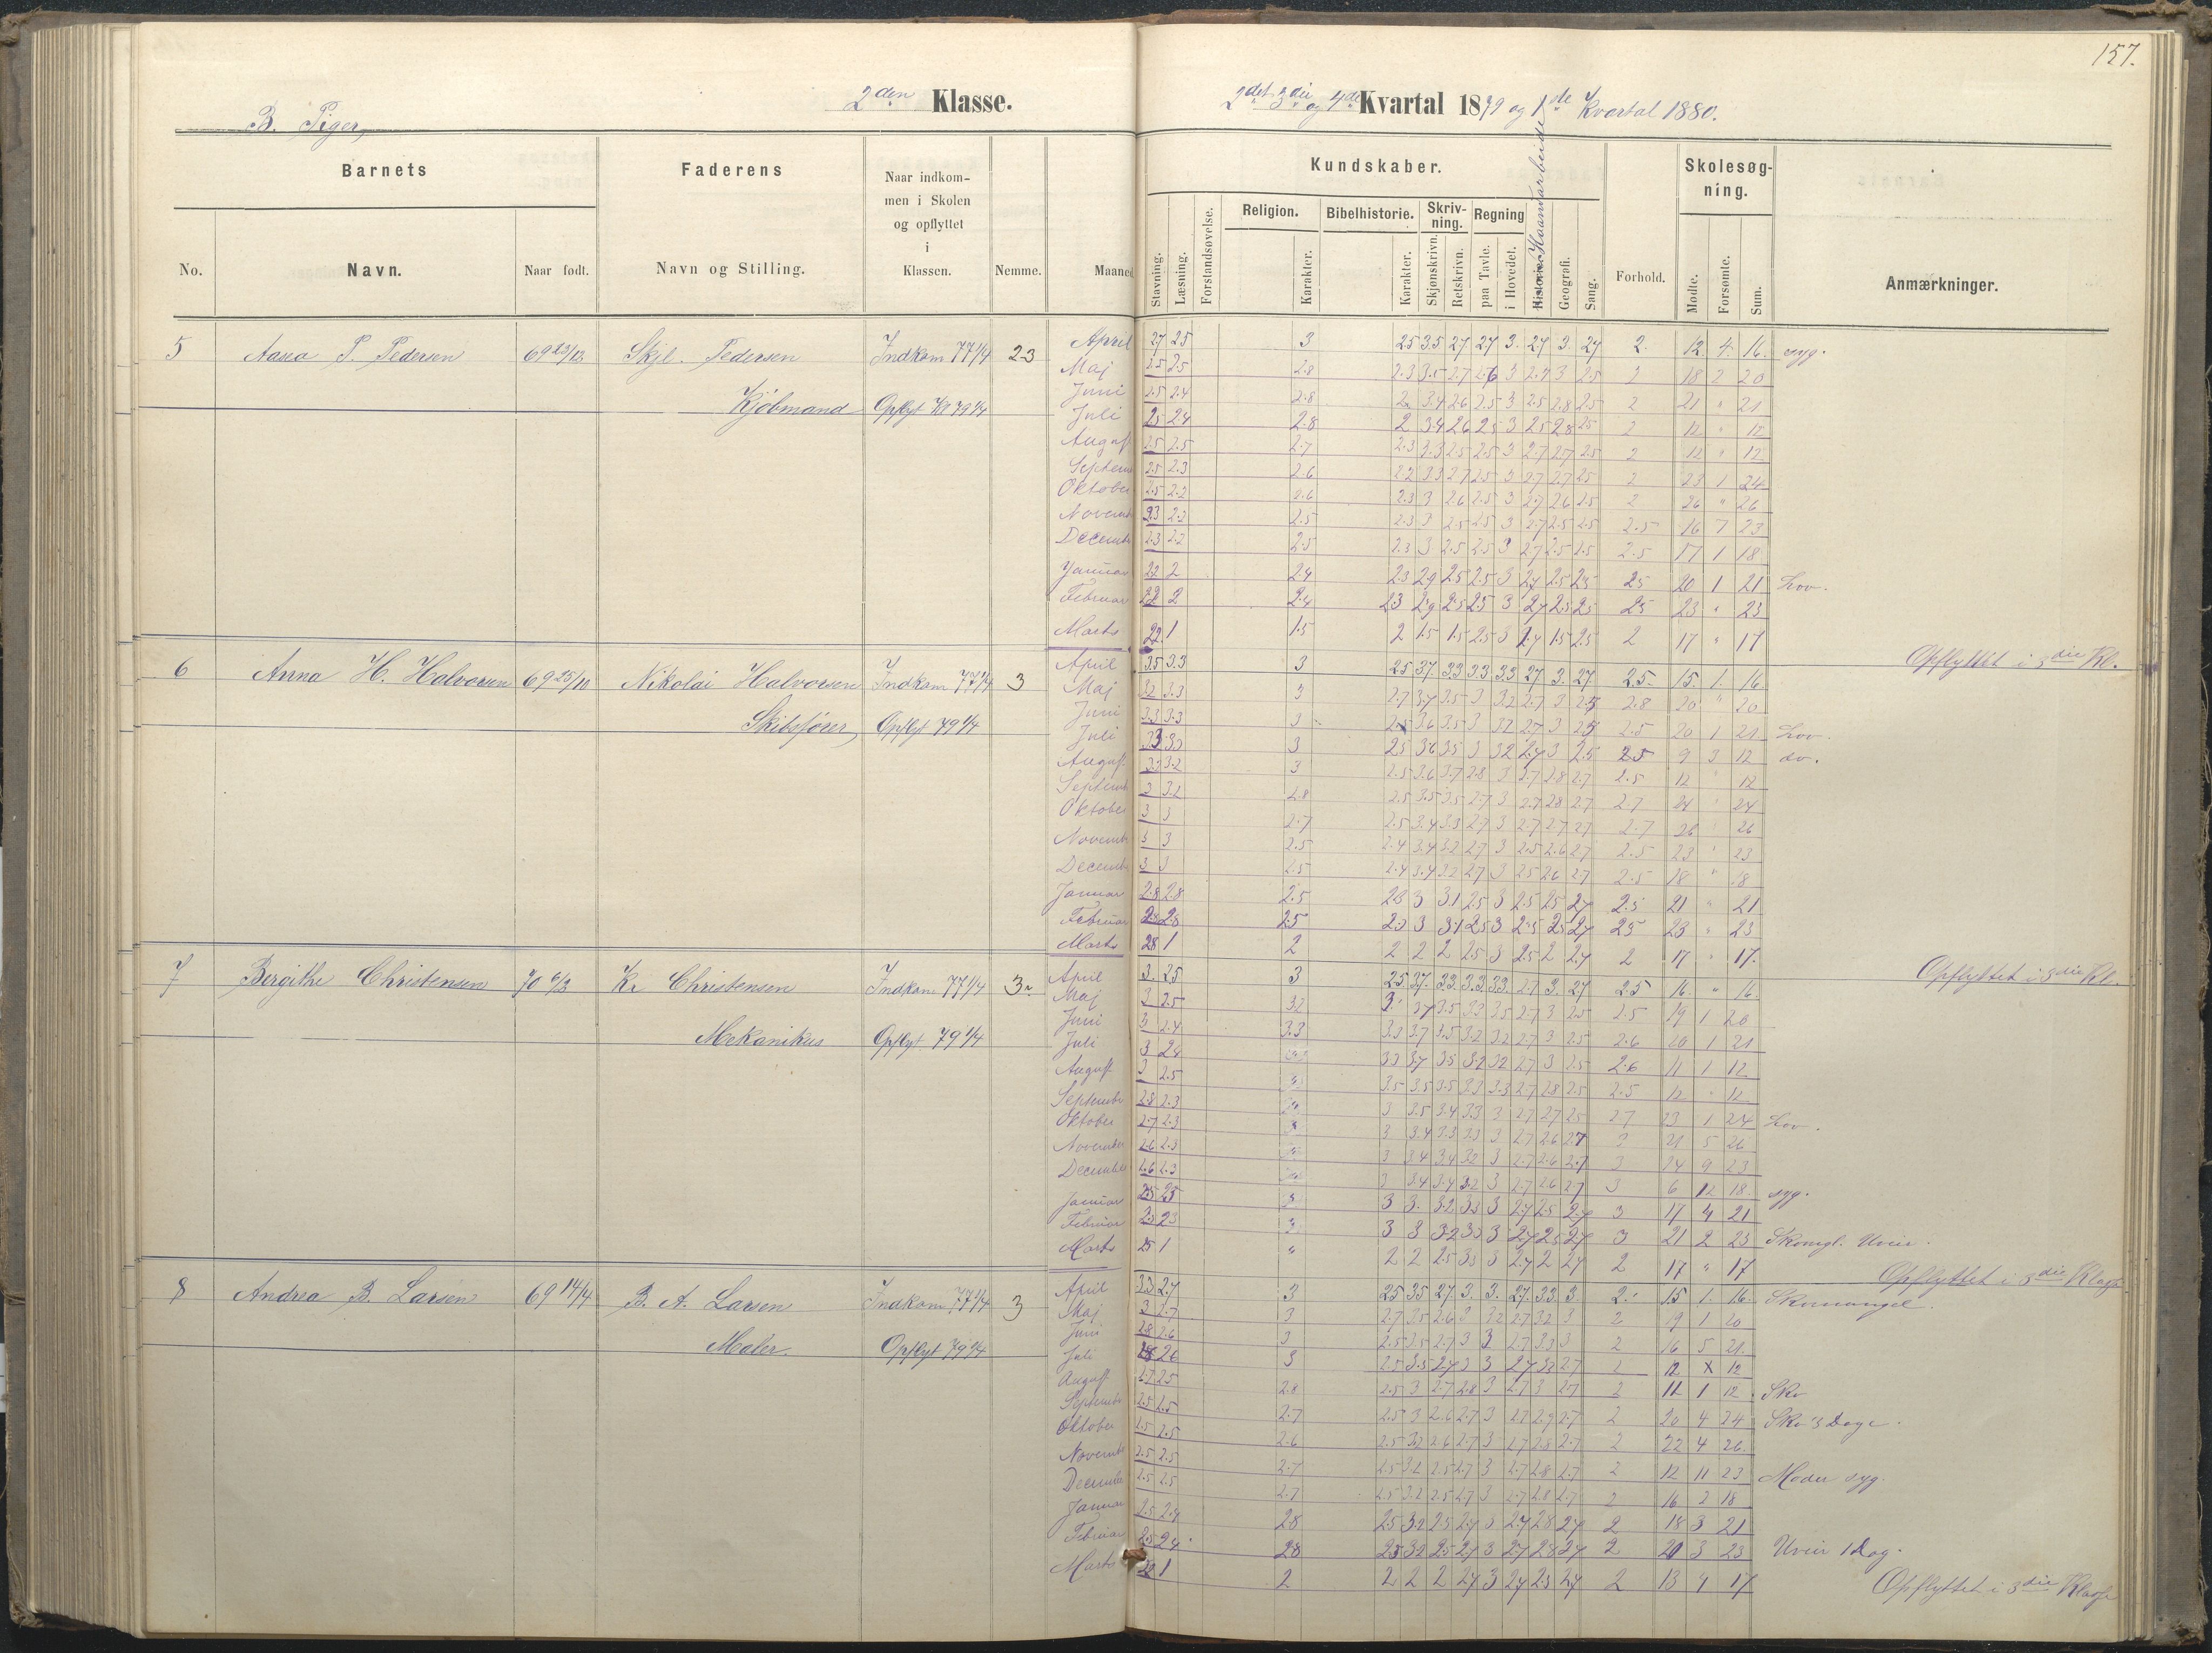 157.
B. Piger,
2den Klasse.
2det 3die og 4de Kvartal 1879 og 1ste Kvartal 1880.
Barnets
Faderens
Naar indkommen i Skolen og opflyttet i Klassen.
Nemme.
Maaned
Kundskaber.
Forhold.
Skolesøgning.
Anmærkninger.
No.
Navn.
Naar født.
Navn og Stilling.
Stavning.
Læsning.
Forstandsøvelse.
Religion.
Karakter.
Bibelhistorie.
Karakter.
Skrivning.
Skjønskrivn.
Retskrivn.
Regning
paa Tavle.
i Hovedet.
Historie. Haandarbeide
Geografi.
Sang.
Mødte.
Forsømte.
Sum.
5 Aasea P. Pedersen 69 23/12 Skjl. Pedersen Indkom 77 1/4 2.3
Kjøbmand Opflyt Kl 79 1/4
April 27 25 3 25 3.5 27 27 3. 27 3. 27 2. 12. 4. 16. syg.
Maj 2.5 2.5 2.8 2.3 3.5 2.7 2.6 3 2.7 3 2.5 2 18 2 20
Juni 2.5 2.4 2.8 2 3.4 2.6 2.5 3 2.5 2.8 2.5 2 21 " 21
Juli 25 24 2.8 2 3.4 26 25 3 25 28 25 2 12 " 12
August 2.5 2.5 2.7 2.3 3.3 2.5 2.5 3 2.7 2.7 2.5 2 12 " 12
Septemb 2.5 2.3 2.6 2.2 3.3 2.7 2.5 3 2.7 2.7 2.5 2 23 1 24
Oktober 2.5 2.2 2.6 2.3 3 2.6 2.5 3 2.7 2.6 2.5 2 26 " 26
Novemb 23 2.2 2.5 2.3 3 2.5 2.5 3 2.7 2.5 2.5 2.5 16 7 23
Decemb 2.3 2.2 2.5 2.3 3 2.5 2.5 3 2.7 2.5 2.5 2.5 17 1 18
Januar 22 2 24 23 29 25 2.5 3 27 2.5 25 25 20 1 21 Lov.
Februar 22 2 2.4 23 29 2.5 25 3 27 25 25 25 23 " 23
Marts 22 1 1.5 2 1.5 1.5 2.5 3 1.4 1.5 25 2 17 " 17
Opflyttet i 3die Kl.
6 Anna H. Halvorsen 69 25/10 Nikolai Halvorsen Indkom 77 1/4 3
Skibsfører, Opflyt 79 1/4
April 3.5 3.3 3 25 37. 33 3.3 3.3 27 3. 27 2.5 15. 1. 16.
Maj 3.2 3.3 3 2.7 3.7 3.5 3 3.2 2.7 3 2.5 2.8 20 " 20
Juni 3.3 3.3 3 2.5 3.6 3.5 3 32 2.7 3 25 2.5 20 1 21 Lov.
Juli 33 33 3 25 36 35 3 32 27 3 2.5 2.5 9 3 12 do.
August 3.2 3.2 3 2.5 3.6 3.7 2.8 3 2.7 2.8 2.7 2.5 12 " 12
Septemb 3 3.2 2.8 2.5 3.5 3.5 2.7 3 2.7 28 2.7 2.7 24 " 24
Oktober 3 3 2.7 2.5 3.4 3.3 2.7 3 2.7 2.7 27 2.7 26 " 26
Novemb 3 3 2.5 2.4 3.4 3.2 2.7 3 2.5 2.6 27 2.5 23 " 23
Decemb 3 3 2.5 2.4 3.4 3.2 27 3 25 26 27 2.5 18 " 18
Januar 2.8 2.8 2.5 23 3 3.1 2.5 3 2.5 25 27 2.5 21 " 21
Februar 28 2.8 25 23 3 3.1 25 3 2.5 25 27 25 23 " 23
Marts 28 1 2 2 2 2 25 3 25 2 27 2 17 " 17.
Opflyttet i 3die Kl.
7 Bergithe Christensen 70 6/2 Kr Christensen Indkom 77 1/4 3
Mekanikus Opflyt 79 1/4
April 3. 25 3 25 37. 33 3.3 33. 27 3. 27 25 16. " 16.
Maj 3 2.5 3.2 3. 37 3.5 33 35 2.7 3 25 2.5 19 1 20
Juni 3 2.4 3.3 3.3 3.7 3.5 3.2 3.2 2.7 3 2.5 2.6 20 1 21
Juli 3 24 33 3.7 35 3.2 32 27 3 2.5 2.6 11 1 12
August 3 2.5 " 3.5 3.5 3.5 3.3 3.3 2.7 28 2.5 2.5 12 " 12
Septemb 2.8 2.3 3 3.5 3.4 3.3 3 2.7 27 25 27 23 1 24 Lov.
Oktober 2.7 2.3 3 3.4 3.3 3.3 3 2.7 26 27 3 21 5 26
November 2.6 2.3 3 3.4 3.4 32 3 2.7 2.6 2.7 3 14 9 23
December 2.6 2.3 3 3.4 3.4 3.2 3 2.7 26 27 3 6 12 18 syg.
Januar 25 25 3 3. 3.2 33 3 27 25 27 3 17 4 21
Februar 23 23 3 3 32 33 3 27 25 27 3 21 2 23 Skomgl. Uveir.
Marts 25 1 " 2 2 2.5 33 3 27 2 27 2 17 " 17
Opflyttet i 3die Klasse
8 Andrea B. Larsen 69 14/4 B. A. Larsen Indkom 77 1/4 3
Maler. Opflyt 79 1/4
April 33 27 3 25 35 27 3. 3. 27. 33. 3. 2. 15 1. 16. Skomangel.
Maj 3 2.7 3 2.7 3.5 2.6 3 32 2.7 32 3 2 19 1 20
Juni 2.8 2.6 3 2.5 3.5 2.7 3 3 2.7 33 3 2 16 5 21.
Juli 28 26 3 2.5 3.5 27 3 3 27 32 27 2 12 x 12
August 2.7 25 2.8 2.5 3 2.7 2.8 3 2.7 3 27 2 11 1 12 Sko
Septemb 2.5 2.5 2.7 2.5 3 2.6 2.7 3 2.7 2.9 2.7 2 20 4 24 Sko 3 Dage.
Oktober 2.5 2.5 2.6 2.5 3.2 2.6 2.7 3 2.7 2.8 2.7 2 22 4 26.
Novemb 2.5 2.5 2.7 2.5 3.2 2.5 2.7 3 2.7 2.8 2.7 2 12 11 23 Moder syg.
December 2.5 2.5 2.7 2.5 3.2 2.5 2.7 3 2.7 2.8 2.7 2 16 2 18
Januar 2.5 2.4 28 2.5 3.2 25 27 3 27 28 27 2 18 3 21
Februar 25 24 28 25 32 25 27 3 27 28 27 2 20 3 23 Uveir 1 Dag.
Marts 22 1 2 2 2 2 27 3 27 2.3 27 2 13 4 17
Opflyttet i 3die Klasse